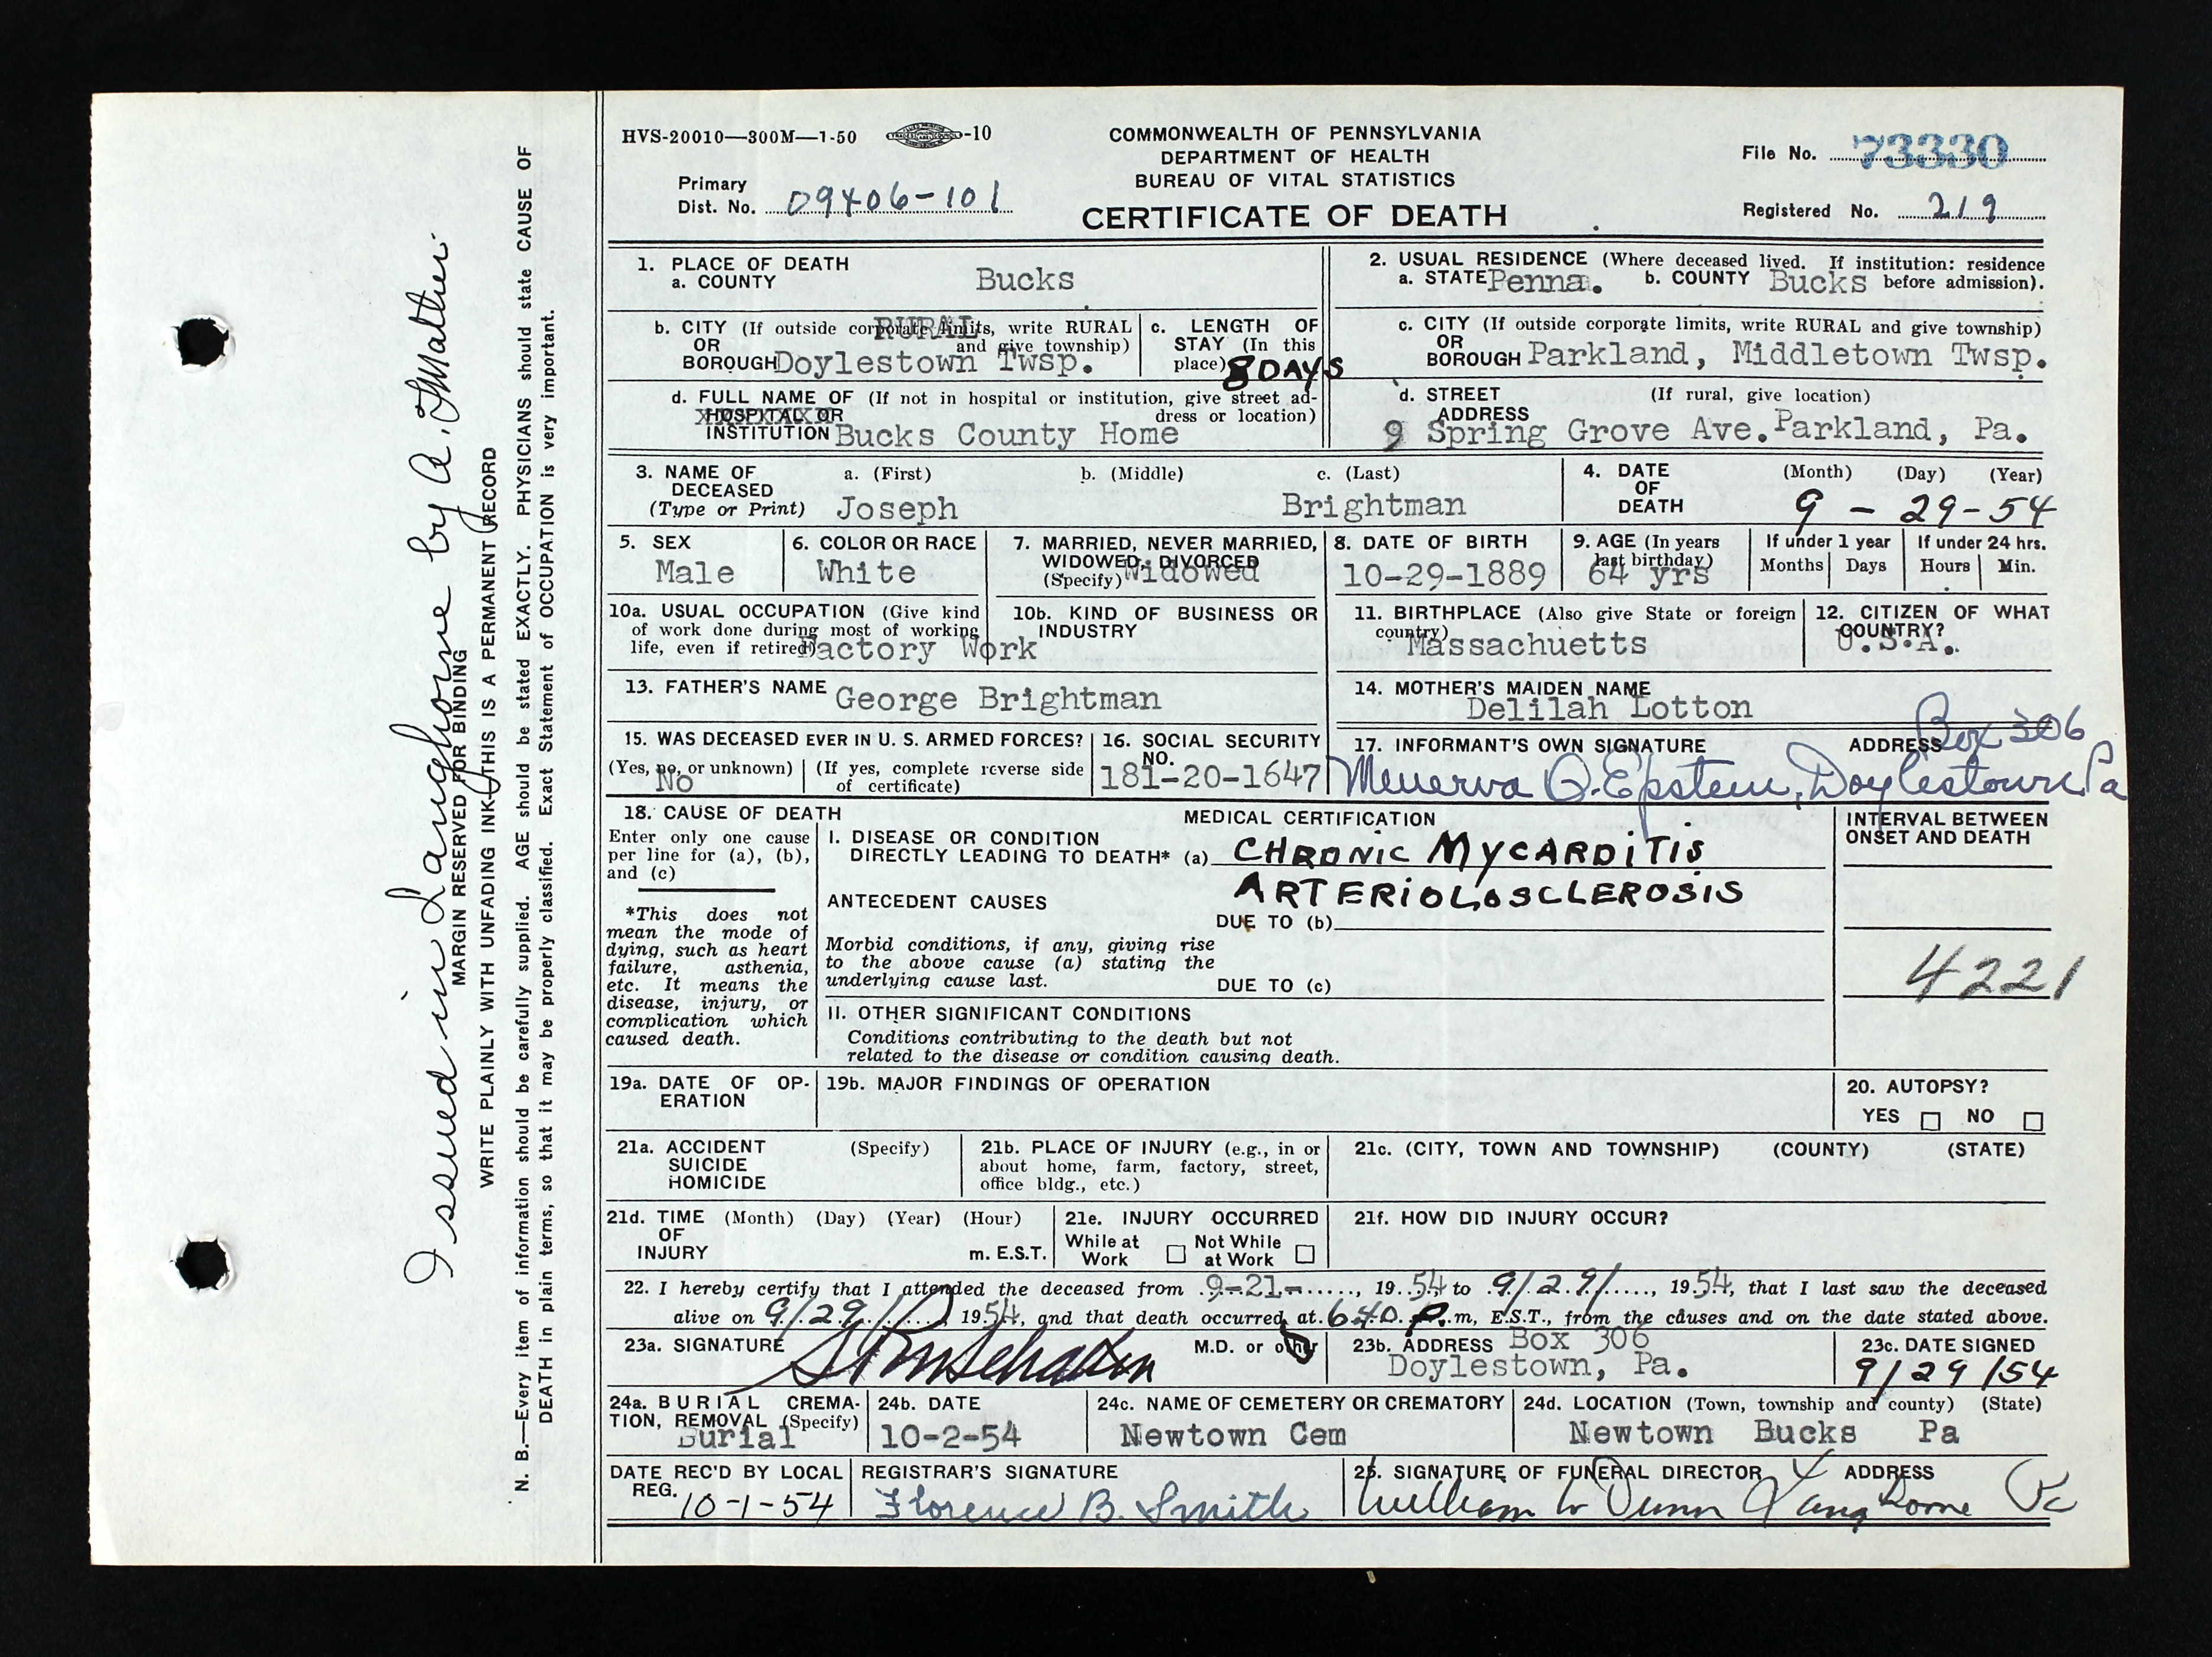 HVS-20010—300M—1-50 -10
COMMONWEALTH OF PENNSYLVANIA
DEPARTMENT OF HEALTH
BUREAU OF VITAL STATISTICS
CERTIFICATE OF DEATH
File No. 73330
Primary
Dist. No. 09406-101
Registered No. 219
1. PLACE OF DEATH
a. COUNTY Bucks
2. USUAL RESIDENCE (Where deceased lived. If institution: residence
a. STATE Penna. b. COUNTY Bucks before admission).
b. CITY (If outside corporate limits, write RURAL
OR and give township)
RURAL
BOROUGH Doylestown Twsp.
c. LENGTH OF
STAY (In this
place) 8 DAYS
c. CITY (If outside corporate limits, write RURAL and give township)
OR
BOROUGH Parkland, Middletown Twsp.
d. FULL NAME OF (If not in hospital or institution, give street ad-
HOSPITAL OR dress or location)
INSTITUTION Bucks County Home
d. STREET (If rural, give location)
ADDRESS
9 Spring Grove Ave. Parkland, Pa.
3. NAME OF a. (First) b. (Middle) c. (Last)
DECEASED
(Type or Print) Joseph Brightman
4. DATE (Month) (Day) (Year)
OF
DEATH 9 - 29-54
5. SEX
Male
6. COLOR OR RACE
White
7. MARRIED, NEVER MARRIED,
WIDOWED, DIVORCED
(Specify) Widowed
8. DATE OF BIRTH
10-29-1889
9. AGE (In years
last birthday)
64 yrs
If under 1 year
Months Days
If under 24 hrs.
Hours Min.
10a. USUAL OCCUPATION (Give kind
of work done during most of working
life, even if retired) Factory Work
10b. KIND OF BUSINESS OR
INDUSTRY
11. BIRTHPLACE (Also give State or foreign
country)
Massachuetts
12. CITIZEN OF WHAT
COUNTRY?
U.S.A.
13. FATHER'S NAME George Brightman
14. MOTHER'S MAIDEN NAME
Delilah Lotton
15. WAS DECEASED EVER IN U. S. ARMED FORCES?
(Yes, no, or unknown) (If yes, complete reverse side
No of certificate)
16. SOCIAL SECURITY
NO.
181-20-1647
17. INFORMANT'S OWN SIGNATURE ADDRESS Box 306
Menerva O. Epstein, Doylestown Pa
18. CAUSE OF DEATH
Enter only one cause
per line for (a), (b),
and (c)
*This does not
mean the mode of
dying, such as heart
failure, asthenia,
etc. It means the
disease, injury, or
complication which
caused death.
MEDICAL CERTIFICATION
I. DISEASE OR CONDITION
DIRECTLY LEADING TO DEATH* (a) CHRONIC MYCARDITIS
ARTERIOLOSCLEROSIS
ANTECEDENT CAUSES
DUE TO (b)
Morbid conditions, if any, giving rise
to the above cause (a) stating the
underlying cause last. DUE TO (c)
II. OTHER SIGNIFICANT CONDITIONS
Conditions contributing to the death but not
related to the disease or condition causing death.
INTERVAL BETWEEN
ONSET AND DEATH
4221
19a. DATE OF OP-
ERATION
19b. MAJOR FINDINGS OF OPERATION
20. AUTOPSY?
YES NO
21a. ACCIDENT (Specify)
SUICIDE
HOMICIDE
21b. PLACE OF INJURY (e.g., in or
about home, farm, factory, street,
office bldg., etc.)
21c. (CITY, TOWN AND TOWNSHIP) (COUNTY) (STATE)
21d. TIME (Month) (Day) (Year) (Hour)
OF
INJURY m. E.S.T.
21e. INJURY OCCURRED
While at Not While
Work at Work
21f. HOW DID INJURY OCCUR?
22. I hereby certify that I attended the deceased from 9-21-, 1954 to 9/29/, 1954, that I last saw the deceased
alive on 9/29/, 1954, and that death occurred at 640 P.m, E.S.T., from the causes and on the date stated above.
23a. SIGNATURE M.D. or other
23b. ADDRESS Box 306
Doylestown, Pa.
23c. DATE SIGNED
9/29/54
24a. BURIAL CREMA-
TION, REMOVAL (Specify)
Burial
24b. DATE
10-2-54
24c. NAME OF CEMETERY OR CREMATORY
Newtown Cem
24d. LOCATION (Town, township and county) (State)
Newtown Bucks Pa
DATE REC'D BY LOCAL
REG. 10-1-54
REGISTRAR'S SIGNATURE
Florence B. Smith
25. SIGNATURE OF FUNERAL DIRECTOR ADDRESS
William W Dunn Langhorne Pa
Issued in Langhorne by A.
MARGIN RESERVED FOR BINDING
WRITE PLAINLY WITH UNFADING INK—THIS IS A PERMANENT RECORD
N. B.—Every item of information should be carefully supplied. AGE should be stated EXACTLY. PHYSICIANS should state CAUSE OF
DEATH in plain terms, so that it may be properly classified. Exact Statement of OCCUPATION is very important.